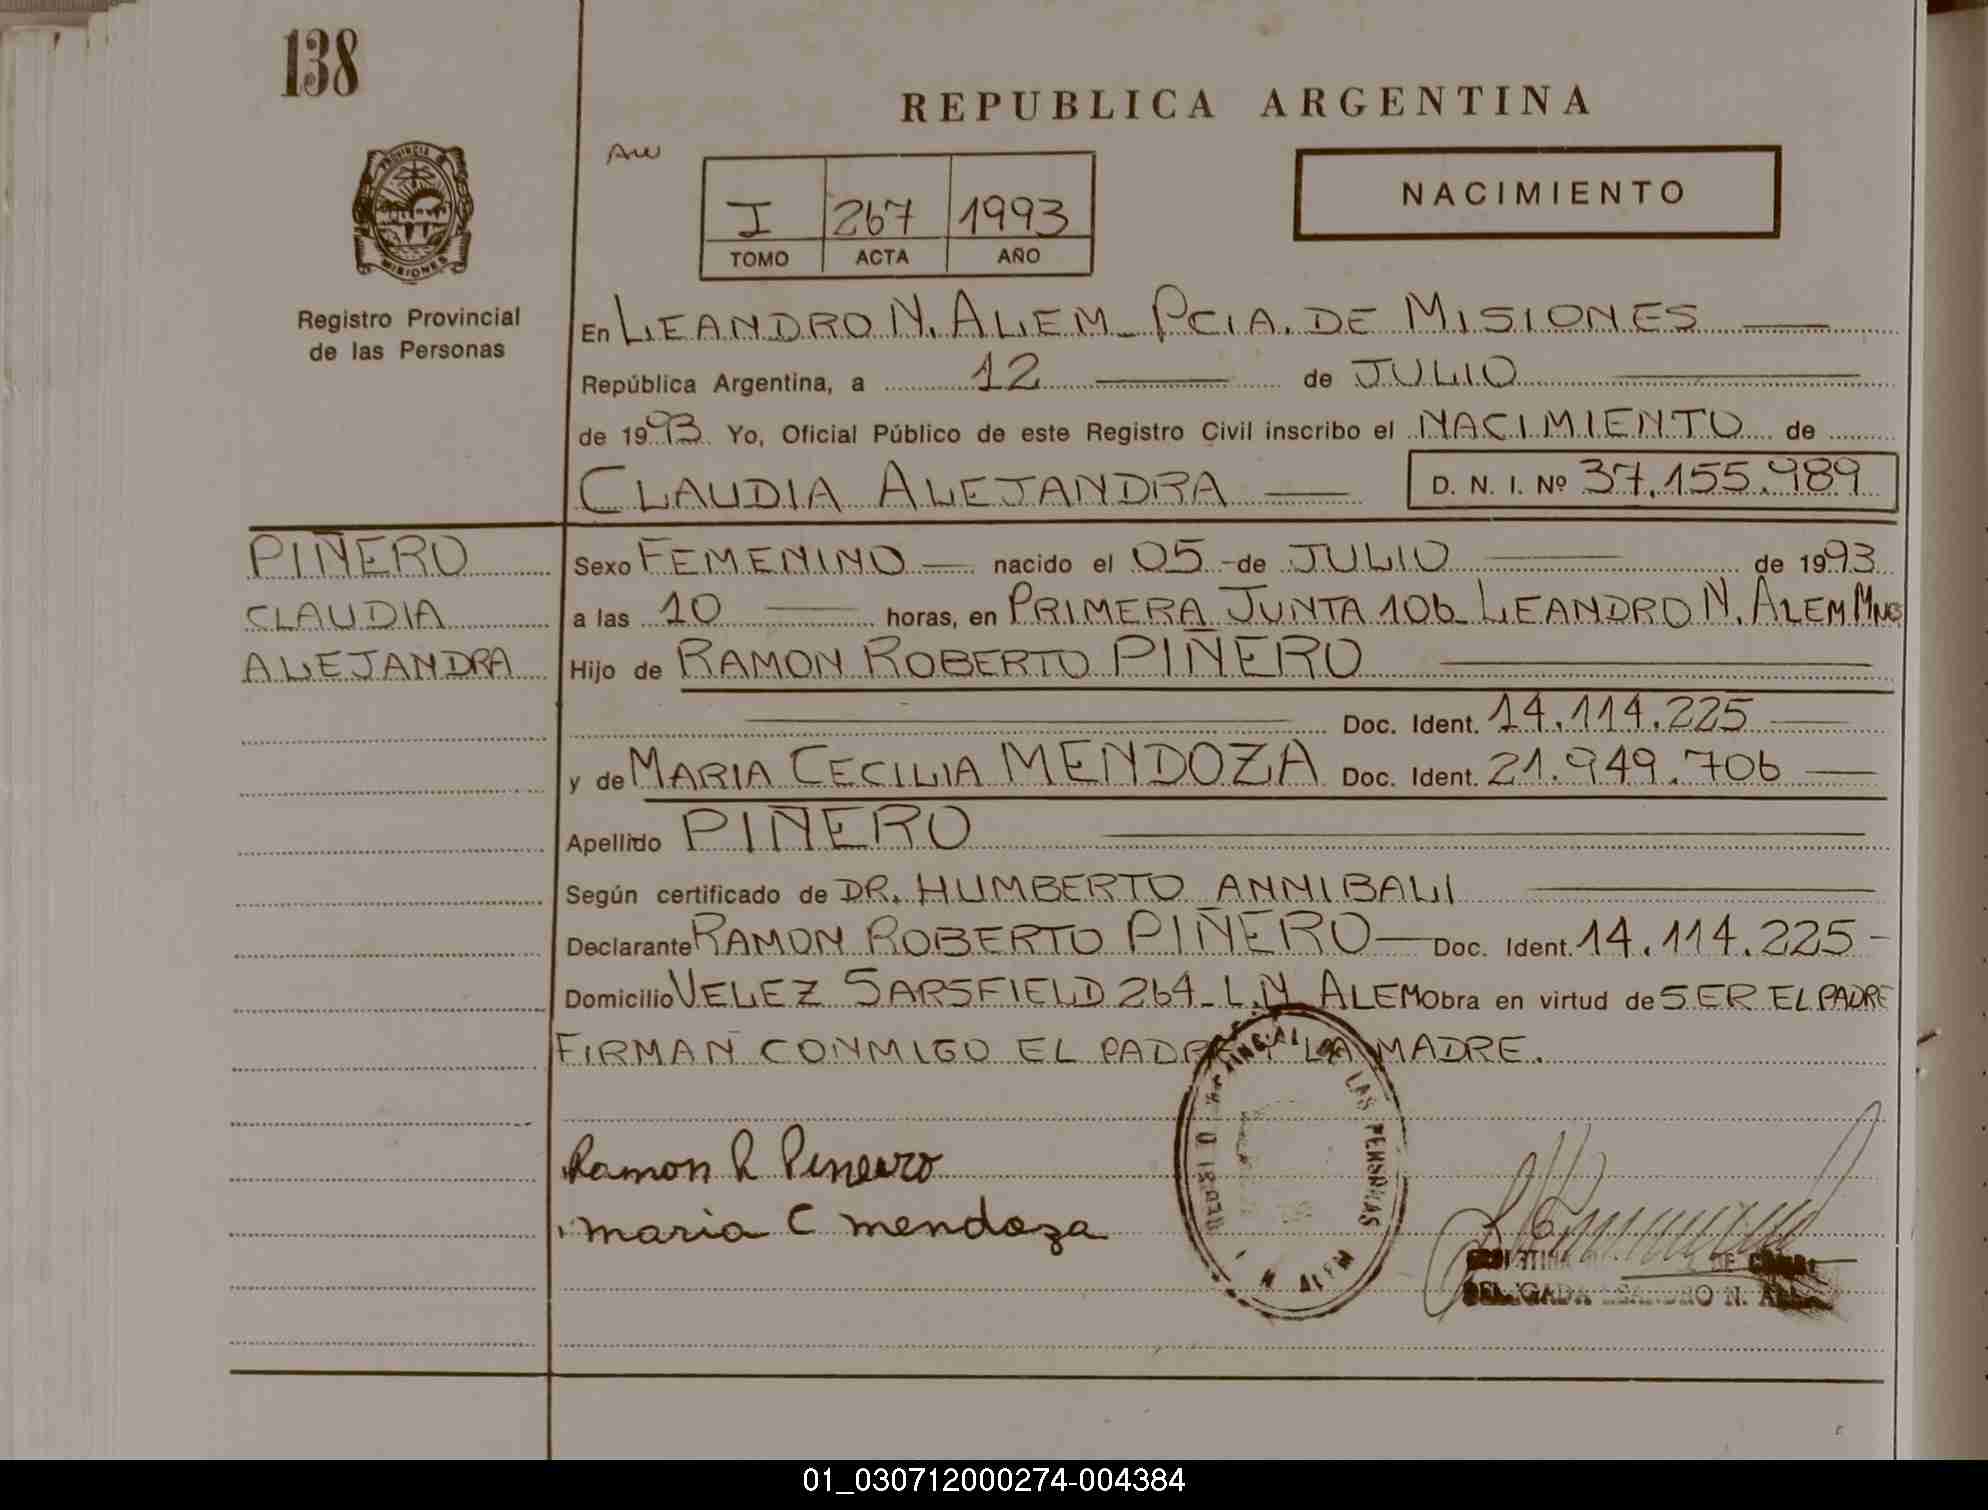 138
REPUBLICA ARGENTINA
PROVINCIA DE
MISIONES
Registro Provincial
de las Personas
I 267 1993
TOMO ACTA AÑO
NACIMIENTO
En LEANDRO N. ALEM - PCIA. DE MISIONES
República Argentina, a 12 de JULIO
de 1993 Yo, Oficial Público de este Registro Civil inscribo el NACIMIENTO de
CLAUDIA ALEJANDRA D. N. I. Nº 37.155.989
PIÑERO
CLAUDIA
ALEJANDRA
Sexo FEMENINO nacido el 05 - de JULIO de 1993
a las 10 horas, en PRIMERA JUNTA 106 - LEANDRO N. ALEM Mnes
Hijo de RAMON ROBERTO PIÑERO
Doc. Ident. 14.114.225
y de MARIA CECILIA MENDOZA Doc. Ident. 21.949.706
Apellido PIÑERO
Según certificado de DR. HUMBERTO ANNIBALI
Declarante RAMON ROBERTO PIÑERO Doc. Ident. 14.114.225 -
Domicilio VELEZ SARSFIELD 264 - L.N. ALEM Obra en virtud de SER EL PADRE
FIRMAN CONMIGO EL PADRE Y LA MADRE.
Ramon R
maria C mendoza
DE LAS PERSONAS
DELEGADA LEANDRO N.
01_030712000274-004384